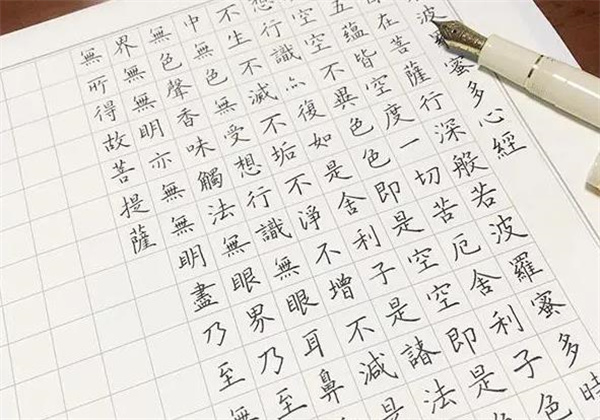 波蜜多心經
在菩薩行深般若波羅蜜多時
五蘊皆空度一切苦厄舍利子色
空空不異色色即是空空即是
想行識亦復如是舍利子是諸法
不生不滅不垢不淨不增不減
中無色無受想行識無眼耳鼻
無色聲香味觸法無眼界乃至無
界無無明亦無無明盡乃至
無所得故菩提薩